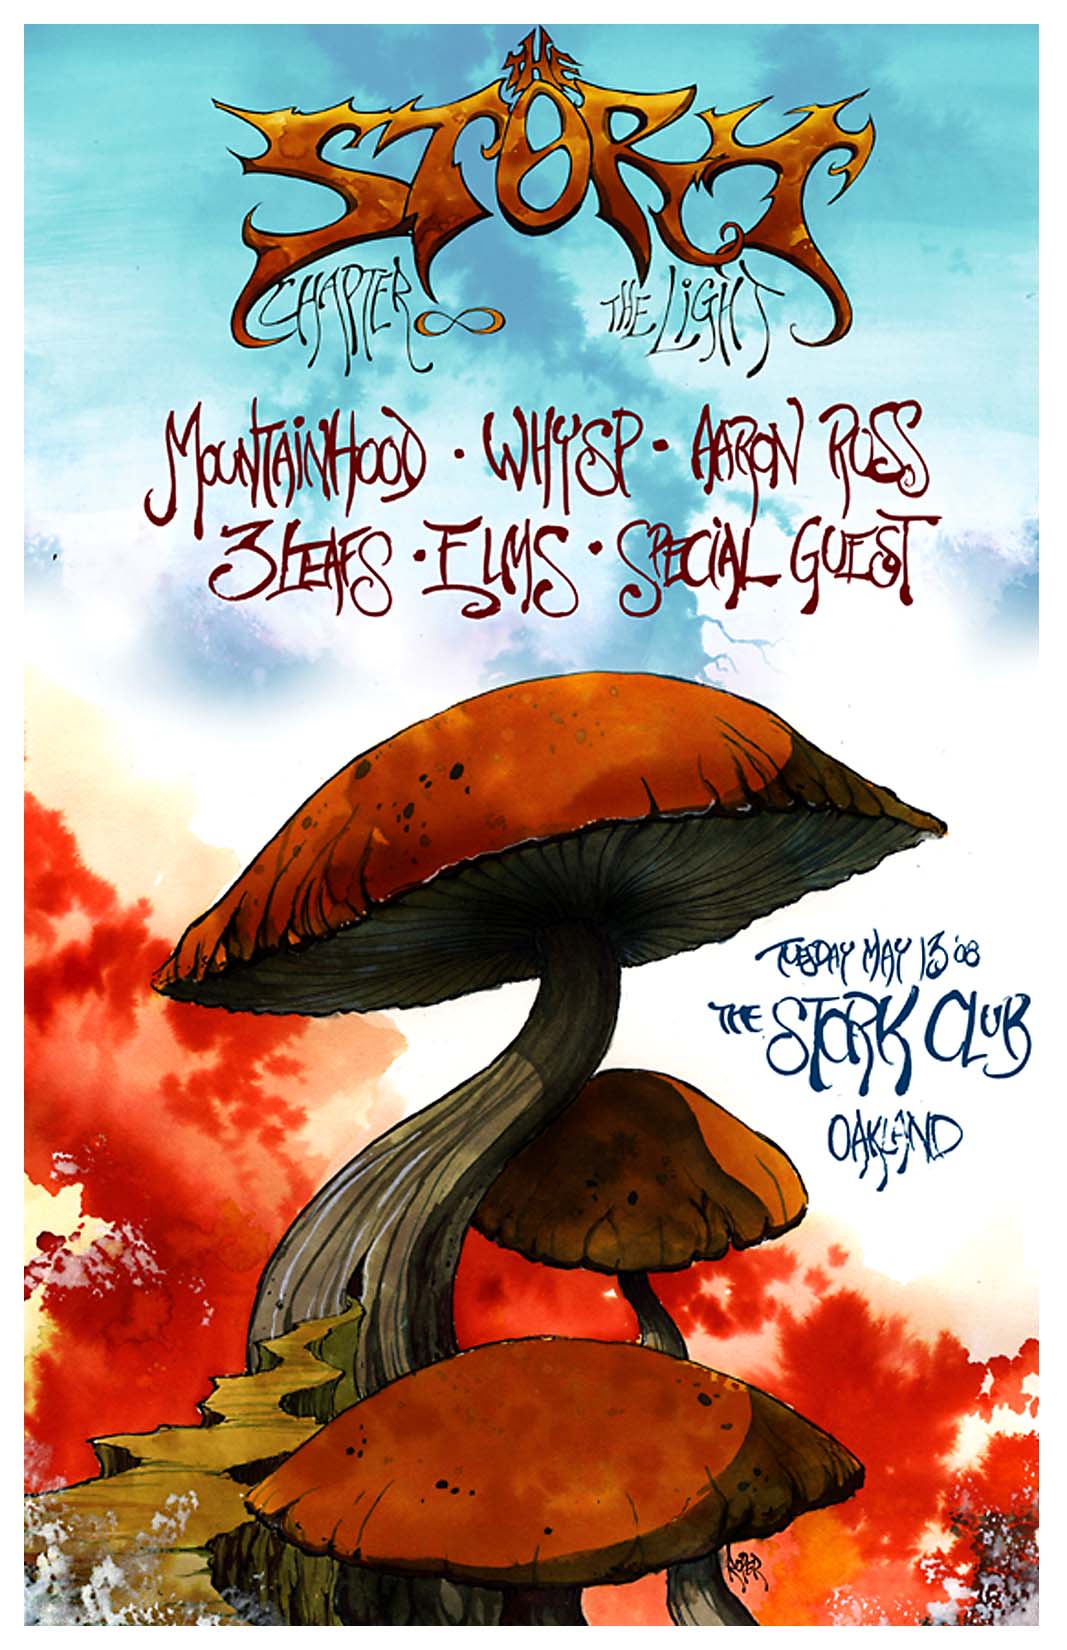 THE
STORY
CHAPTER ∞ THE LIGHT
MOUNTAINHOOD · WHYSP · AARON ROSS
3 LEAFS · ELMS · SPECIAL GUEST
TUESDAY MAY 13 '08
THE STORK CLUB
OAKLAND